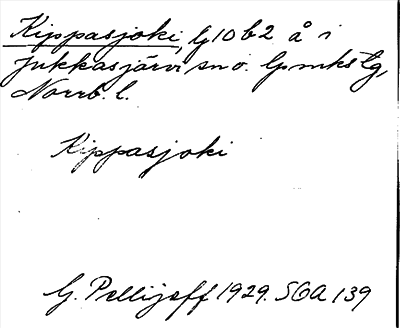 Kippasjoki, lj 10 b2 å i
Jukkasjärvi sn o. lpmks tg,
Norrb. l.
Kippasjoki
G. Pellijeff 1929. SOA 139